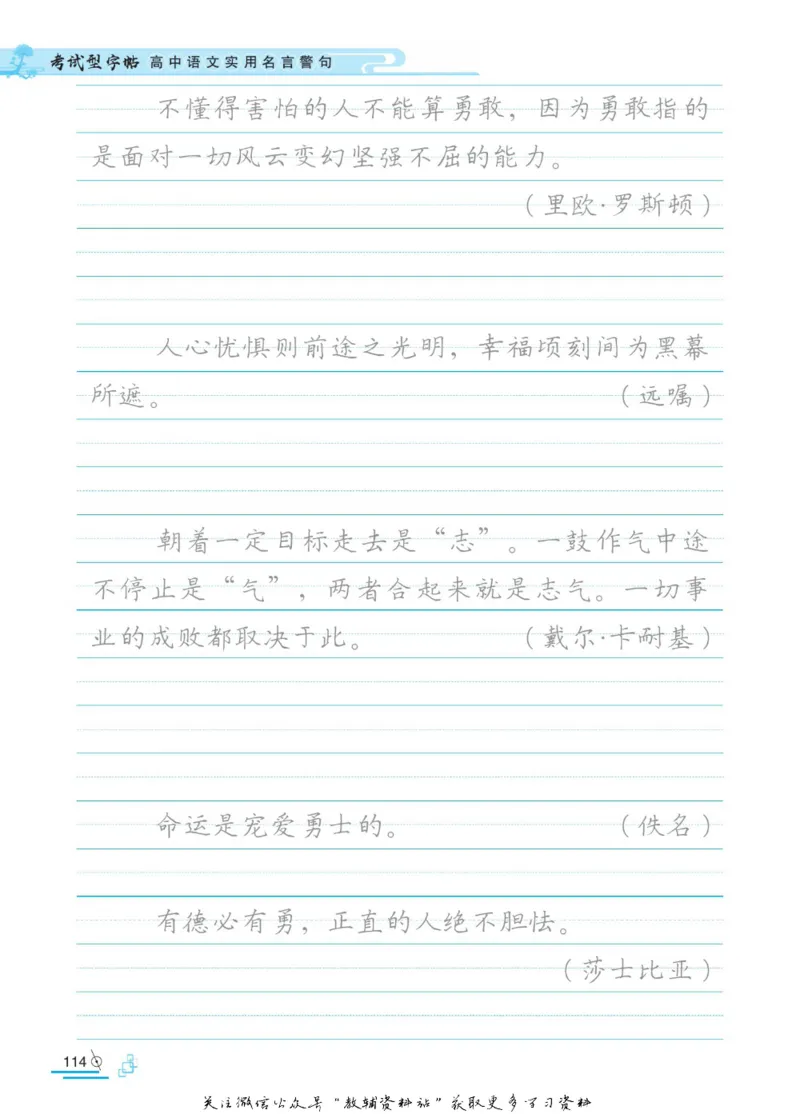 考试型字帖 高中语文实用名言警句
不懂得害怕的人不能算勇敢，因为勇敢指的
是面对一切风云变幻坚强不屈的能力。
（里欧·罗斯顿）
人心忧惧则前途之光明，幸福顷刻间为黑幕
所遮。（远嘱）
朝着一定目标走去是“志”。一鼓作气中途
不停止是“气”，两者合起来就是志气。一切事
业的成败都取决于此。（戴尔·卡耐基）
命运是宠爱勇士的。（佚名）
有德必有勇，正直的人绝不胆怯。
（莎士比亚）
114
关注微信公众号“教辅资料站”获取更多学习资料